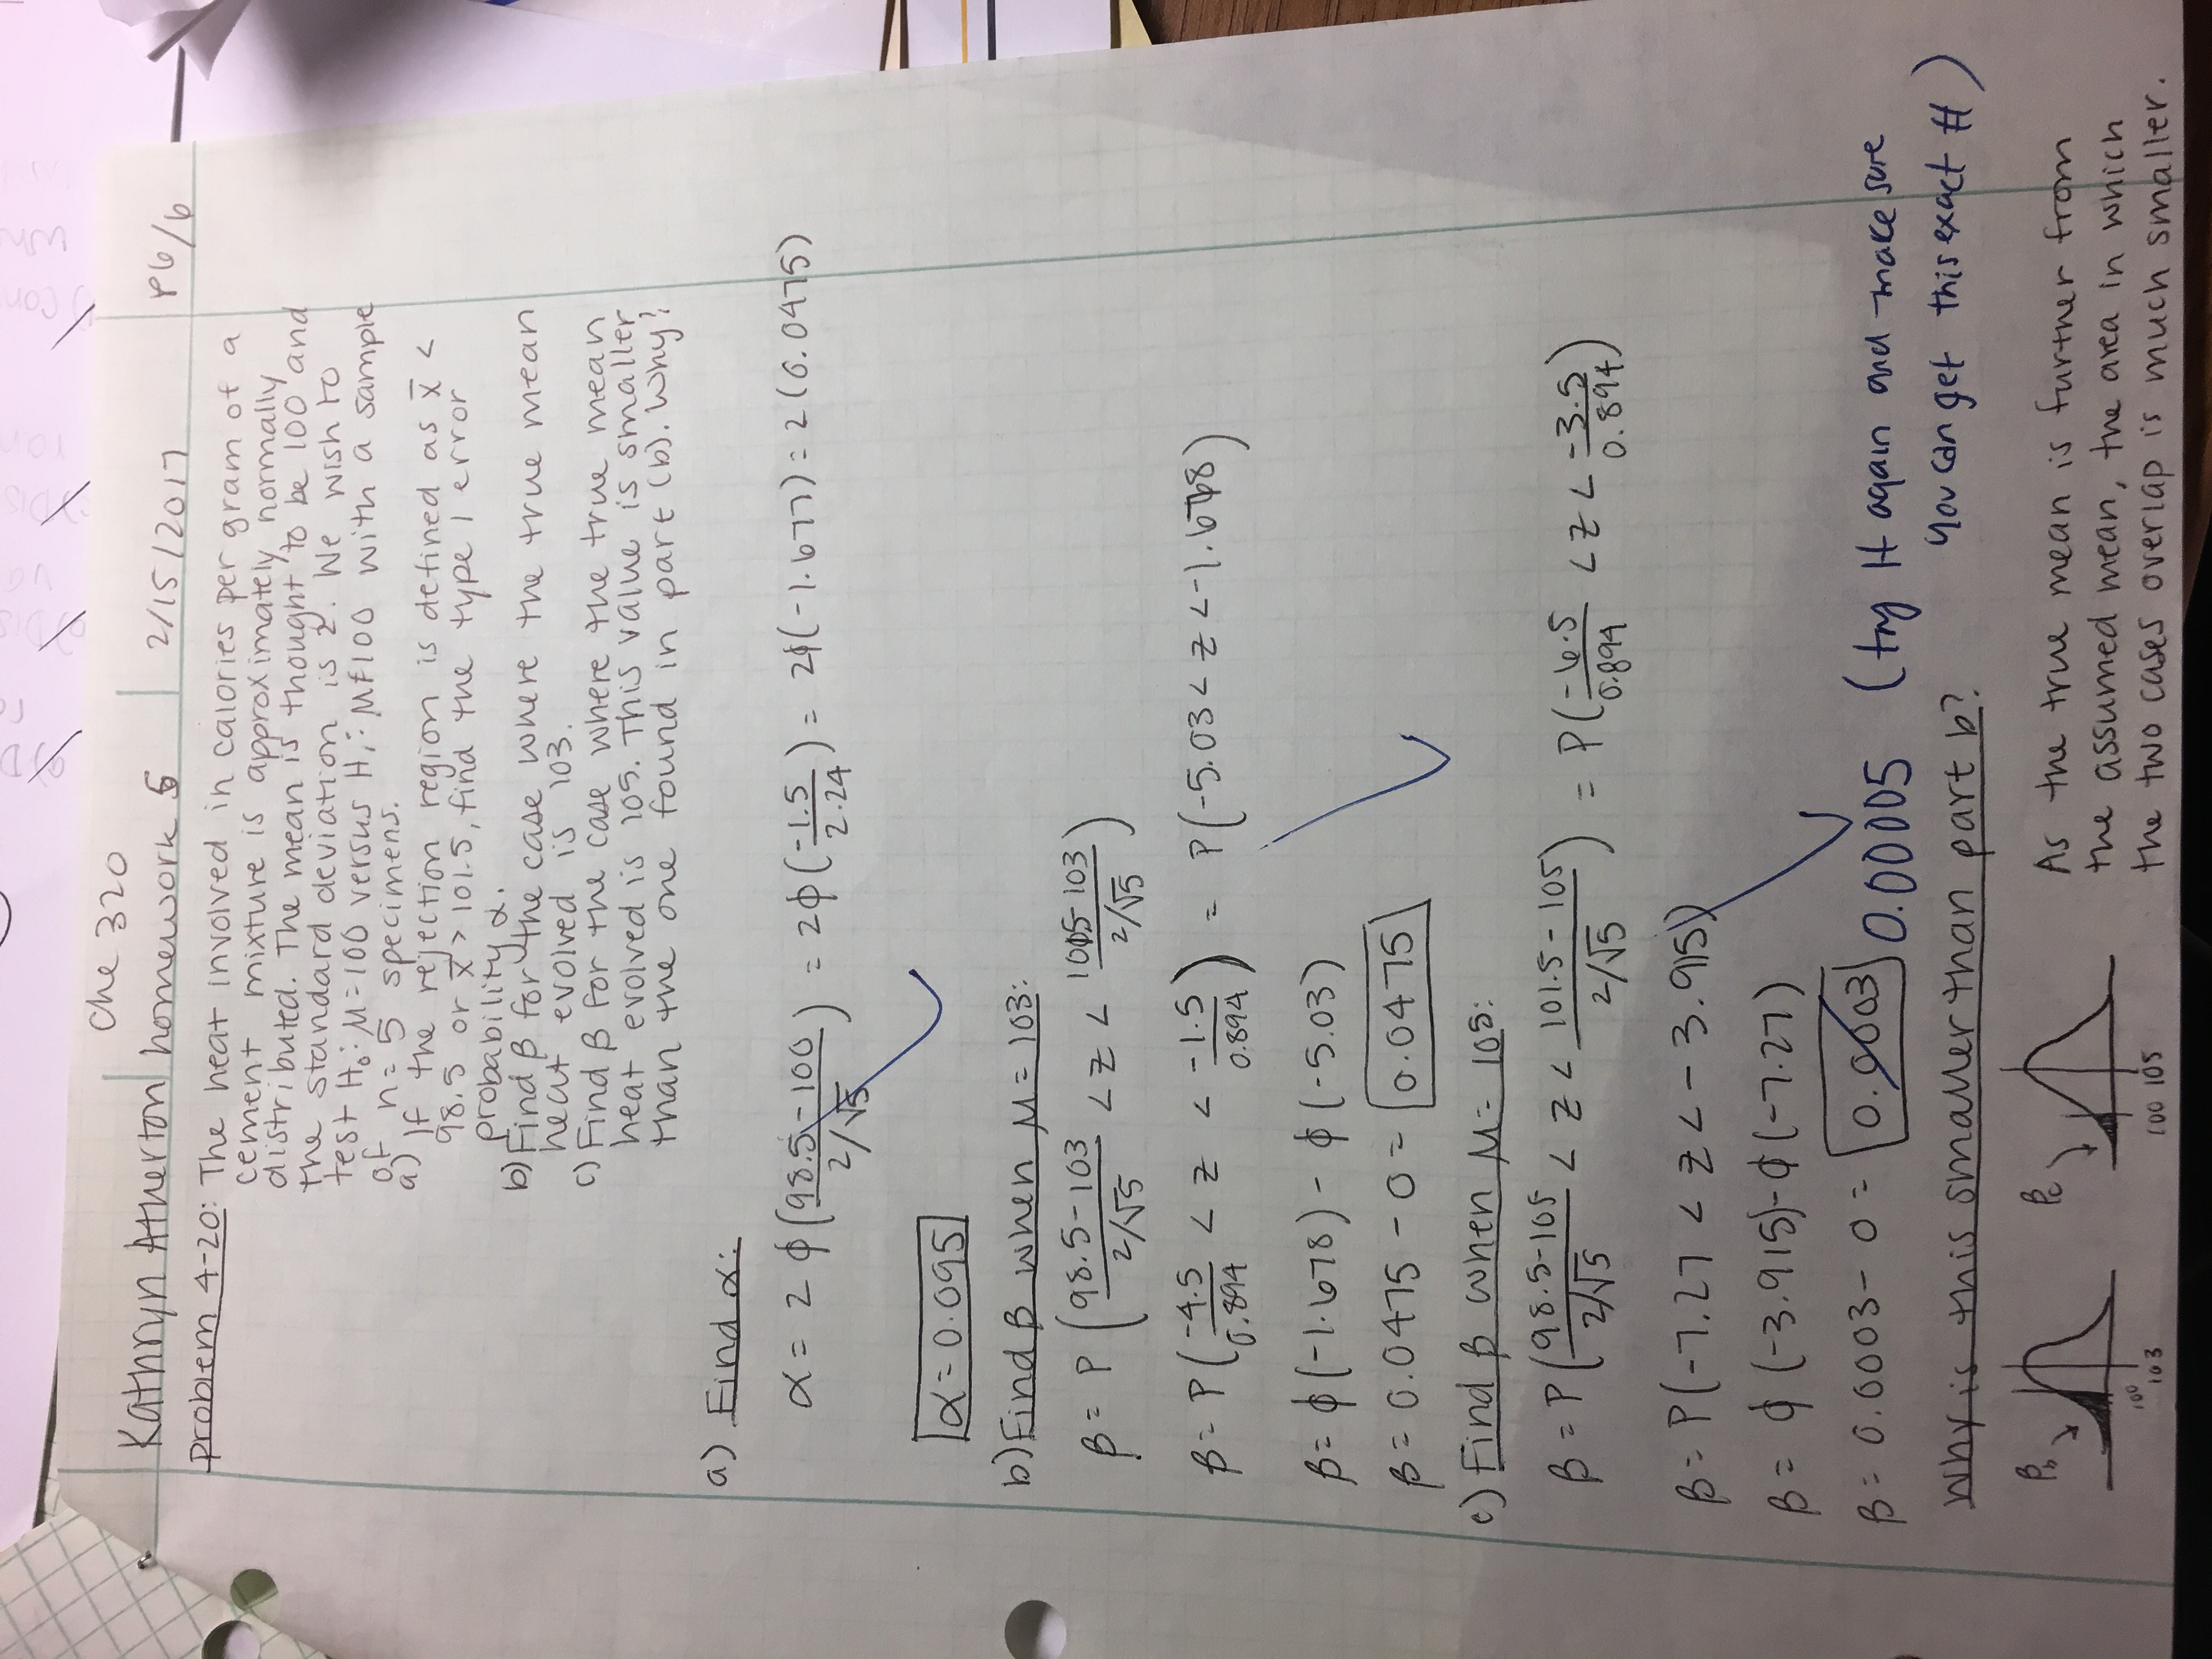 Che 320
Kathryn Atherton homework 5 2/15/2017 P6/6
Problem 4-20: The heat involved in calories per gram of a
cement mixture is approximately normally
distributed. The mean is thought to be 100 and
the standard deviation is 2. We wish to
test H₀: μ=100 versus H₁: μ≠100 with a sample
of n=5 specimens.
a) If the rejection region is defined as x̄ <
98.5 or x̄ > 101.5, find the type 1 error
probability α.
b) Find β for the case where the true mean
heat evolved is 103.
c) Find β for the case where the true mean
heat evolved is 105. This value is smaller
than the one found in part (b). Why?
a) Find α:
α = 2 ϕ((98.5-100)/(2/√5)) = 2ϕ(-1.5/2.24) = 2ϕ(-1.677) = 2(0.0475)
α = 0.095
b) Find β when μ = 103:
β = P((98.5-103)/(2/√5) < z < (101.5-103)/(2/√5))
β = P(-4.5/0.894 < z < -1.5/0.894) = P(-5.03 < z < -1.678)
β = ϕ(-1.678) - ϕ(-5.03)
β = 0.0475 - 0 = 0.0475
c) Find β when μ = 105:
β = P((98.5-105)/(2/√5) < z < (101.5-105)/(2/√5)) = P(-6.5/0.894 < z < -3.5/0.894)
β = P(-7.27 < z < -3.915)
β = ϕ(-3.915) - ϕ(-7.27)
β = 0.0003 - 0 = 0.0003 0.00005 (try it again and make sure
you can get this exact #)
Why is this smaller than part b?
βb βc
As the true mean is further from
the assumed mean, the area in which
the two cases overlap is much smaller.
100 103 100 105